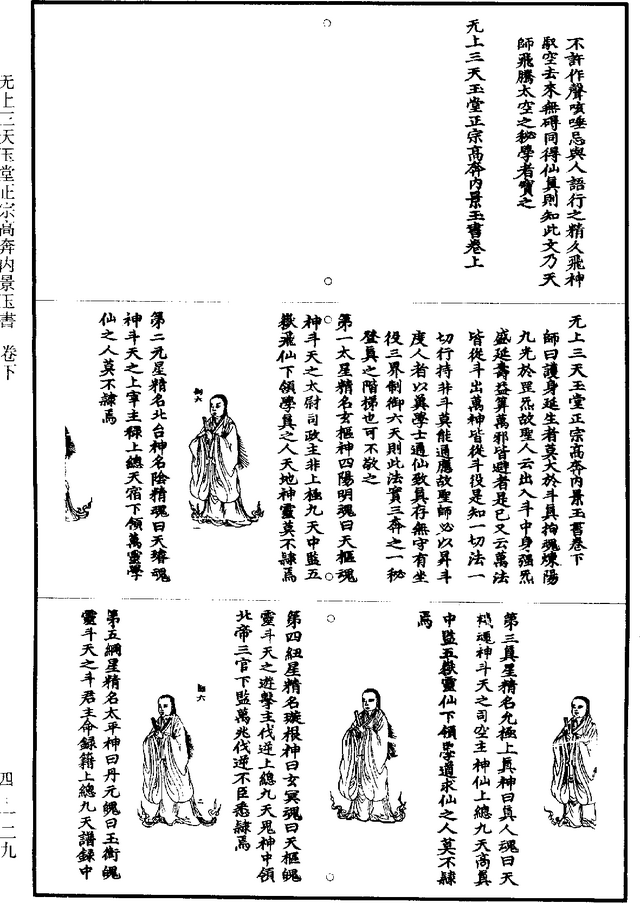 不許作聲咳唾忌與人語行之精久飛神
馭空去來無礙同得仙真則知此文乃天
師飛騰太空之秘學者寶之
无上三天玉堂正宗高奔內景玉書卷上
无上三天玉堂正宗高奔內景玉書卷下
師曰護身延生者莫大於斗真拘魂煉陽
九光於罡炁故聖人云出入斗中身強炁
盛延壽益算萬邪皆避者是已又云萬法
皆從斗出萬神皆從斗役是知一切法一
切行持非斗莫能通應故聖師必以昇斗
度人者以真學士通仙致真存無守有坐
役三界制御六天則此法實三奔之一秘
登真之階梯也可不敬之
第一太星精名玄樞神四陽明魂曰天樞魂
神斗天之太尉司政主非上極九天中監五
嶽飛仙下領學真之人天地神靈莫不隸焉
第二元星精名北台神名陰精魂曰天璿魂
神斗天之上宰主祿上總天宿下領萬靈學
仙之人莫不隸焉
第三真星精名九極上真神曰真人魂曰天
機魂神斗天之司空主神仙上總九天高真
中監五嶽靈仙下領學道求仙之人莫不隸
焉
第四紐星精名璇根神曰玄冥魂曰天樞魄
靈斗天之遊擊主伐逆上總九天鬼神中領
北帝三官下監萬兆伐逆不臣悉隸焉
第五綱星精名太平神曰丹元魄曰玉衡魄
靈斗天之斗君主命錄籍上總九天譜錄中
无上三天玉堂正宗高奔內景玉書 卷下
四—一二九